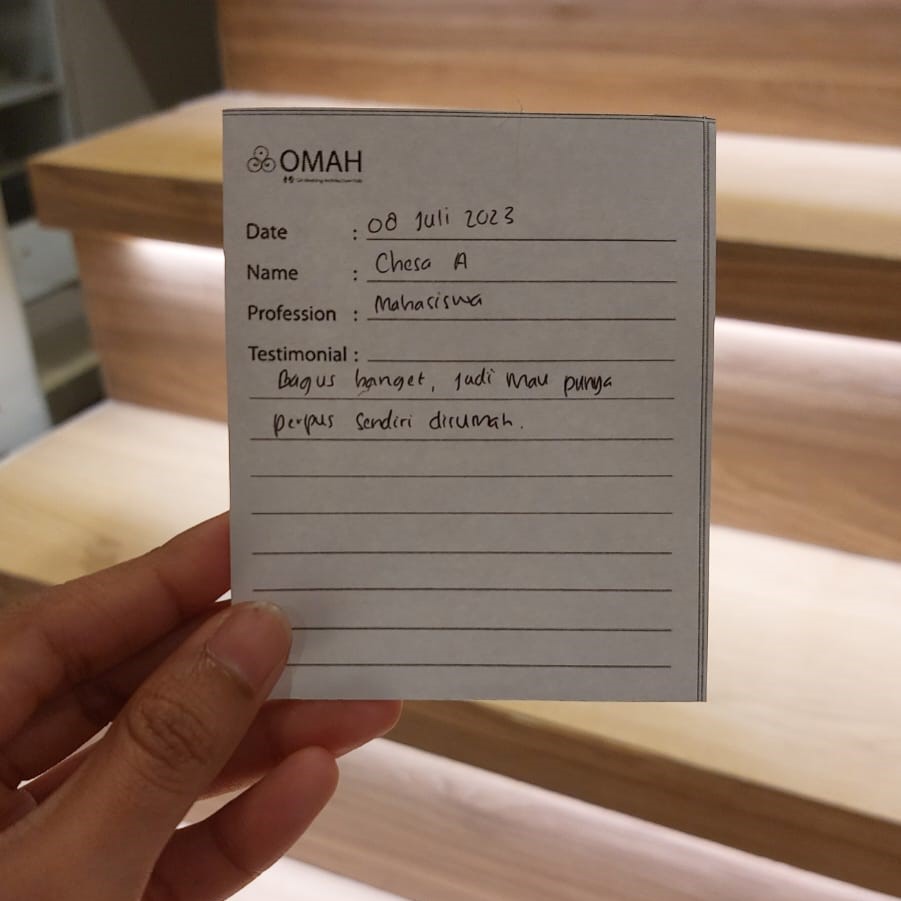 OMAH
Date : 08 Juli 2023
Name : Chesa A
Profession : Mahasiswa
Testimonial :
Bagus banget, Jadi mau punya
perpus sendiri dirumah.